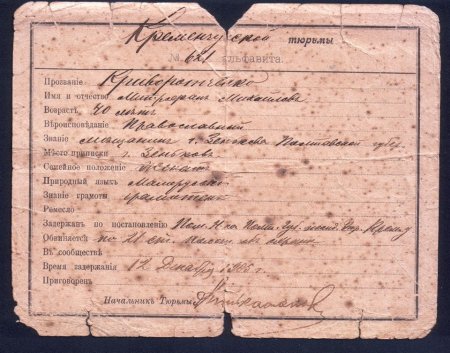 Кременчугской тюрьмы
№ 621 алфавита.
Прозваніе Криворотченко
Имя и отчество Митрофанъ Михайловъ
Возрастъ 40 лѣтъ
Вѣроисповѣданіе Православный
Званіе мѣщанинъ г. Зенькова Полтавской губ.
Мѣсто приписки г. Зеньковъ
Семейное положеніе женатъ
Природный языкъ Малорусск
Знаніе грамоты грамотен
Ремесло
Задержанъ по постановленію Пом. Нач. Полт. Губ. Жанд.
Обвиняется по 21 ст.
Въ сообществѣ
Время задержанія 12 Декабря 1905 г.
Приговоренъ
Начальникъ Тюрьмы